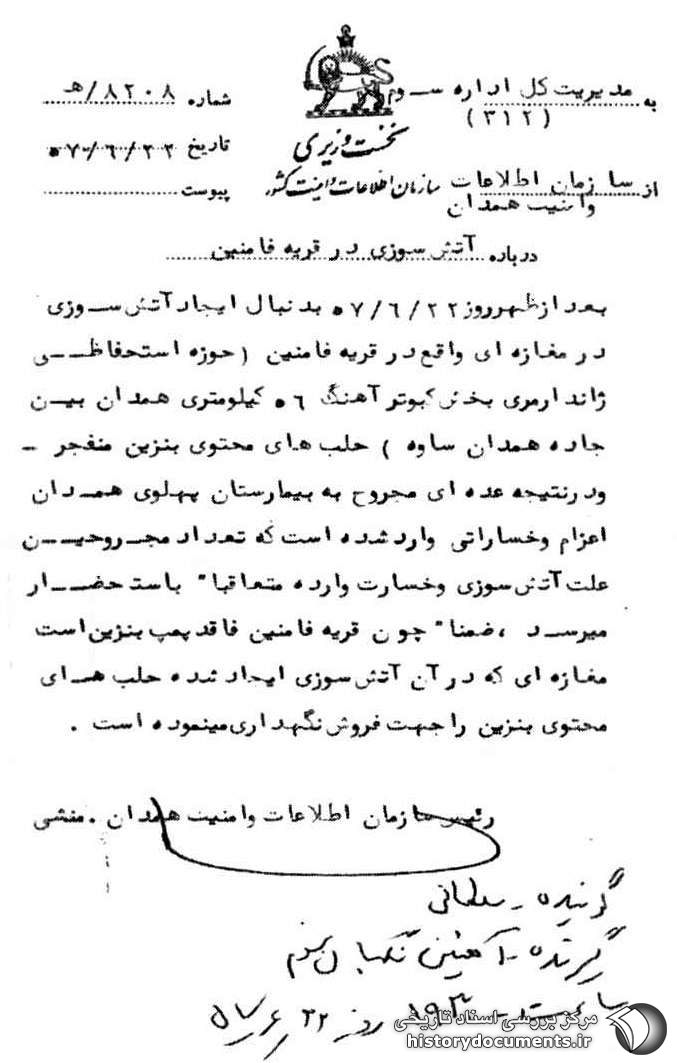 به مدیریت کل اداره سوم
(۳۱۲)
شماره ۸۲۰۸/هـ
نخست وزیری
تاریخ ۵۷/۶/۲۲
سازمان اطلاعات و امنیت کشور
از سازمان اطلاعات
وامنیت همدان
پیوست
درباره آتش سوزی در قریه فامنین
بعد ازظهرروز ۵۷/۶/۲۲ بدنبال ایجاد آتش سوزی
در مغازه ای واقع در قریه فامنین (حوزه استحفاظی
ژاندارمری بخش کبوتر آهنگ ۵۶ کیلومتری همدان بین
جاده همدان ساوه ) حلب های محتوی بنزین منفجر -
ودرنتیجه عده ای مجروح به بیمارستان پهلوی همدان
اعزام وخساراتی وارد شده است که تعداد مجروحین
علت آتش سوزی وخسارت وارده متعاقبا" باستحضار
میرسد ، ضمنا" چون قریه فامنین فاقد پمپ بنزین است
مغازه ای که در آن آتش سوزی ایجاد شده حلب های
محتوی بنزین را جهت فروش نگهداری مینموده است .
رئیس سازمان اطلاعات وامنیت همدان . منشی
گوینده - سلطانی
گیرنده - آهنین نگهبان سوم
ساعت ۱۹۳۰ روز ۲۲
مرکز بررسی اسناد تاریخی
historydocuments.ir